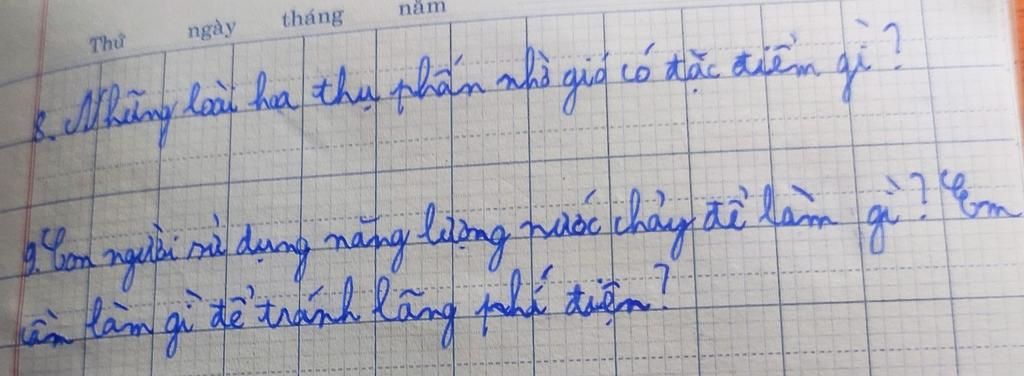 Thứ ngày tháng năm
8. Những loài hoa thụ phấn nhờ gió có đặc điểm gì?
9. Con người sử dụng năng lượng nước chảy để làm gì? Em
cần làm gì để tránh lãng phí điện?